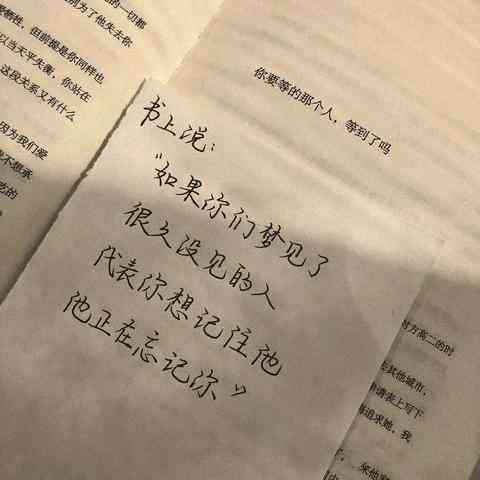 的一切都
别为了他失去你
牺牲，但前提是你同样也
以当天平失衡，你站在
这段关系又有什
因为我们爱
不想承
吃的
你要等的那个人，等到了吗
书上说：
“如果你们梦见了
很久没见的人
代表你想记住他
他正在忘记你”
方高二的时
些其他城市，
请表上写下
追求她，我